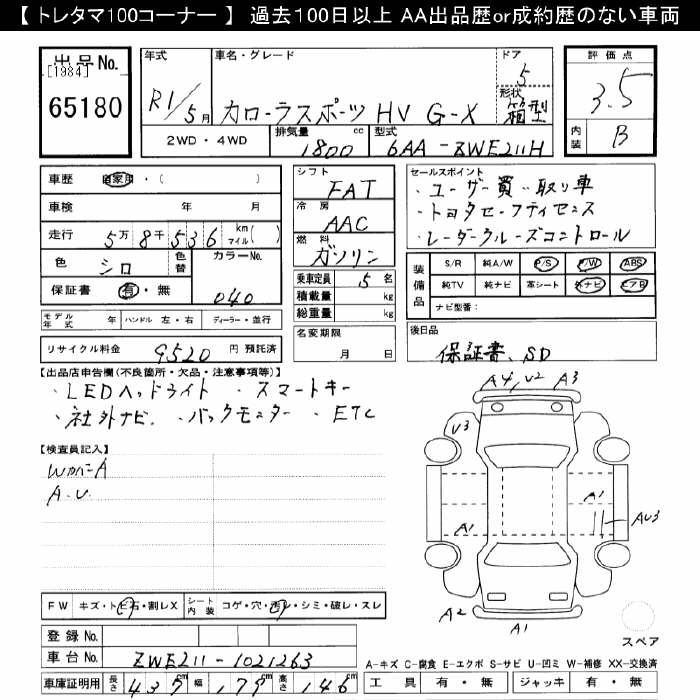 【 トレタマ100コーナー 】 過去100日以上 AA出品歴or成約歴のない車両
出品No.
[1984]
65180
年式
R1/5月
車名・グレード
カローラスポーツ HV G-X
ドア
5
形状
箱型
2WD・4WD
排気量 1800 cc
型式 6AA-ZWE211H
評価点
3.5
内装 B
車歴 自家用・( )
車検 年 月
走行 5万8千536 km マイル( )
色 シロ 色替 カラーNo. 040
保証書 有・無
モデル年式 年 ハンドル 左・右 ディーラー・並行
リサイクル料金 9520 円 預託済
シフト FAT
冷房 AAC
燃料 ガソリン
乗車定員 5名
積載量 kg
総重量 kg
名変期限
月 日
セールスポイント
・ユーザー買い取り車
・トヨタセーフティセンス
・レーダークルーズコントロール
装備品
S/R 純A/W P/S P/W ABS
純TV 純ナビ 革シート 外ナビ エアB
ナビ型番:
後日品
保証書、SD
【出品店申告欄(不良箇所・欠品・注意事項等)】
・LEDヘッドライト ・スマートキー
・社外ナビ ・バックモニター ・ETC
【検査員記入】
A.U
A4 U2 A3
U3
A1
AU3
A1
A2
A1
スペア
FW キズ・トビ石・割レX シート内装 コゲ・穴・汚レ・シミ・破レ・スレ
登録No.
車台No. ZWE211-1021263
車庫証明用 長さ 437cm 幅 179cm 高さ 146cm
A-キズ C-腐食 E-エクボ S-サビ U-凹ミ W-補修 XX-交換済
工具 有・無 ジャッキ 有・無